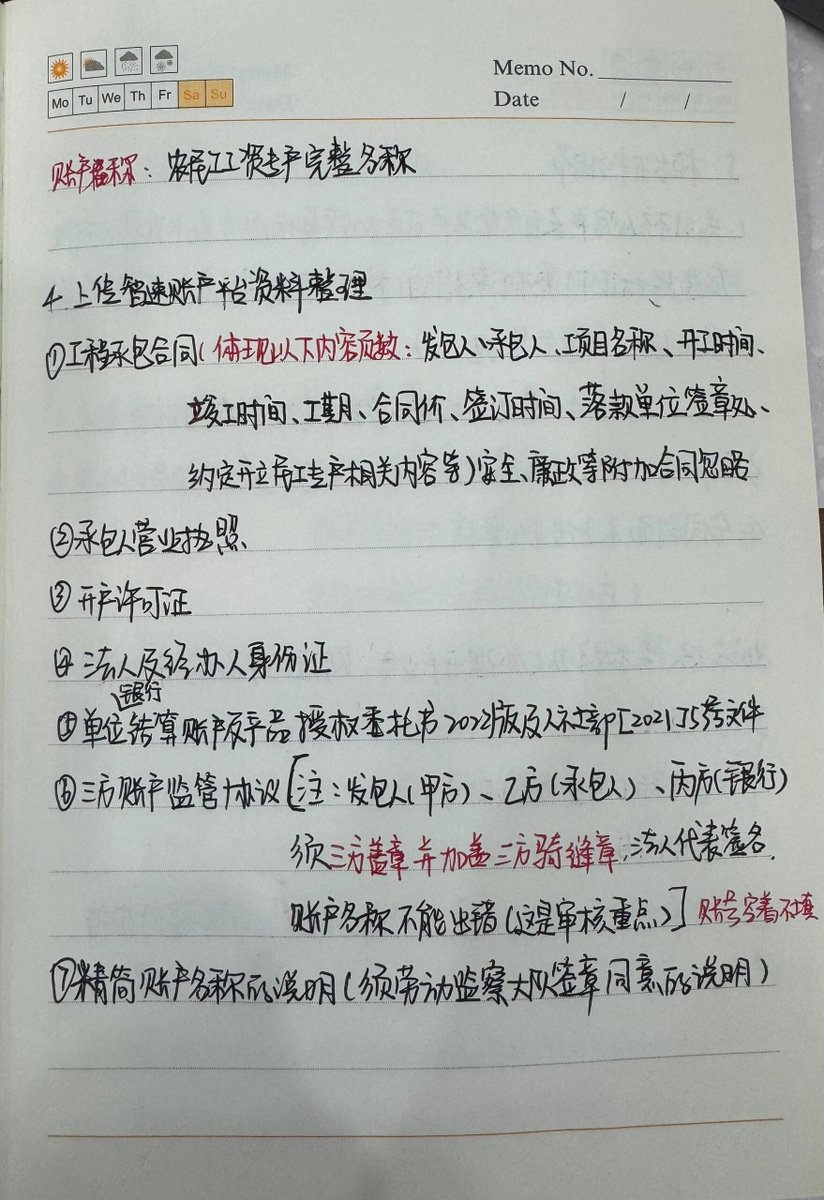 Memo No.
Mo Tu We Th Fr Sa Su
Date / /
账户名称：农民工工资专户完整名称
4.上传智速账户平台资料整理
①工程承包合同(体现以下内容页数：发包人、承包人、项目名称、开工时间、
竣工时间、工期、合同价、签订时间、落款单位签章处、
约定开立民工专户相关内容等)安全、廉政等附加合同忽略
②承包人营业执照
③开户许可证
④法人及经办人身份证
银行
⑤单位结算账户及产品授权委托书2022版及人社部[2021]5号文件
⑥三方账户监管协议[注：发包人(甲方)、乙方(承包人)、丙方(银行)
须三方盖章并加盖三方骑缝章,法人代表签名.
账户名称不能出错(这是审核重点)]账号空着不填
⑦精简账户名称的说明(须劳动监察大队签章同意的说明)